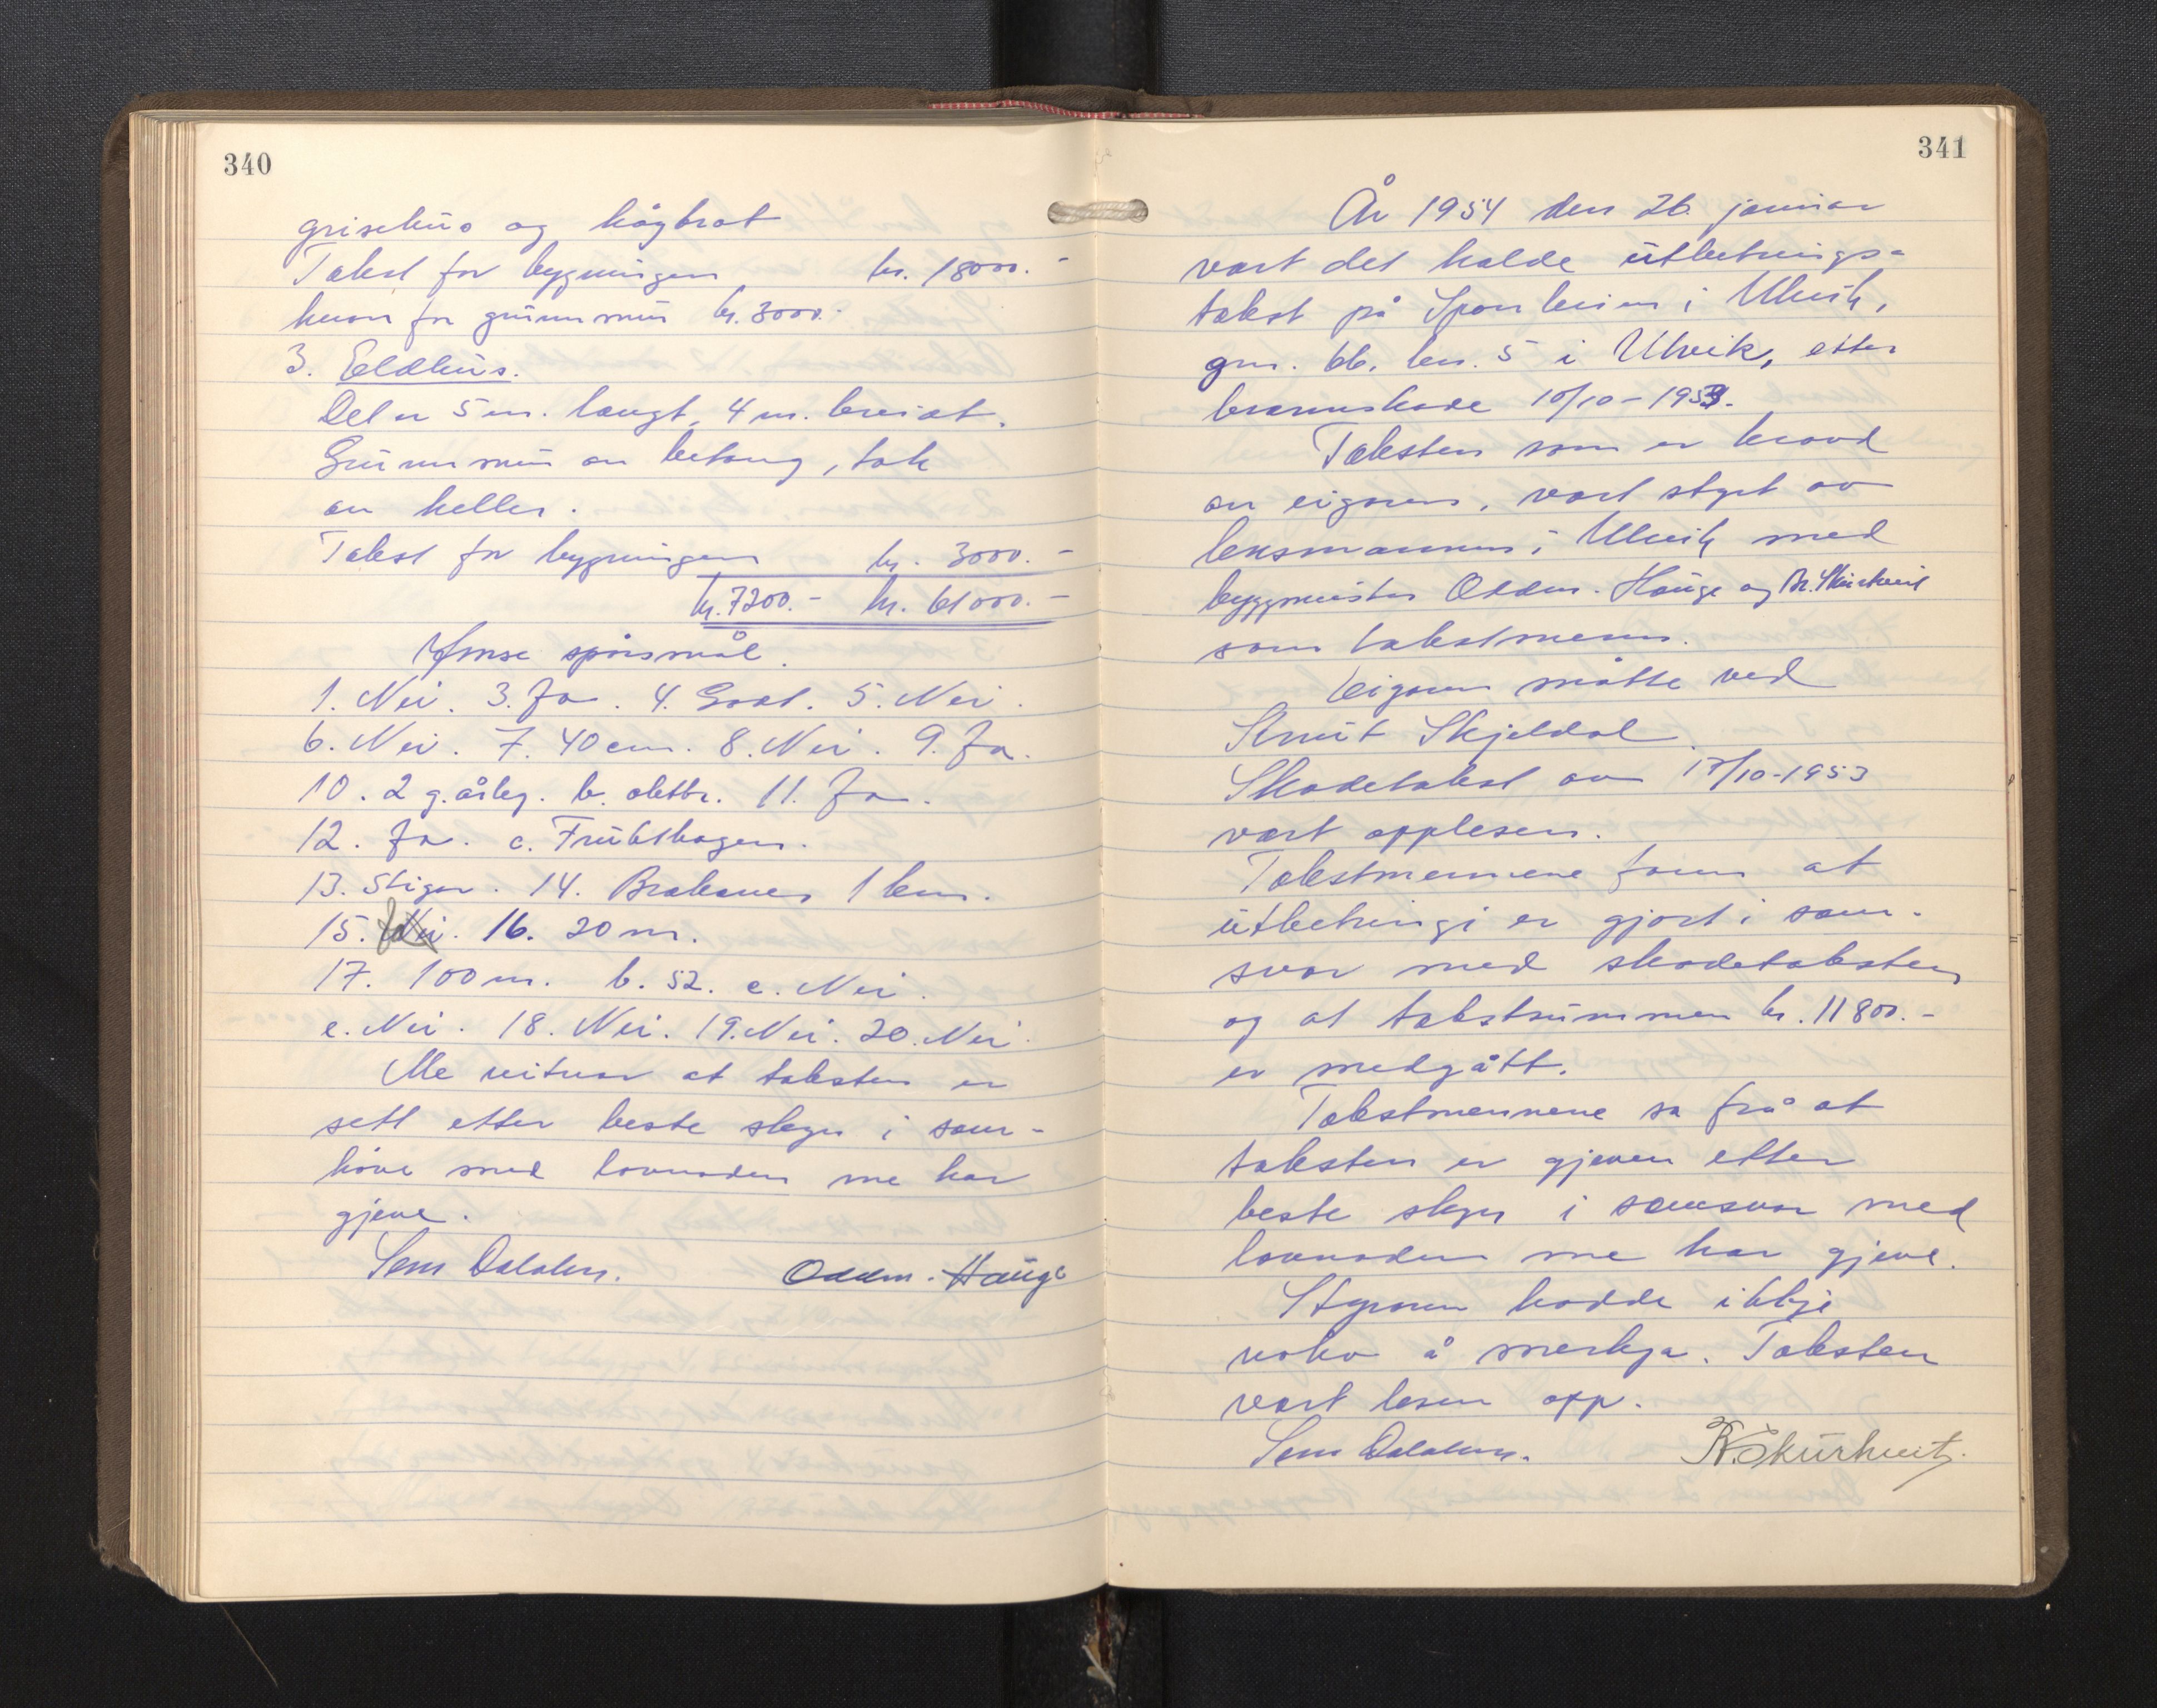 340
grisehus og högbrot
Takst for bygningen kr. 18000.-
hvorav for grunnmur kr. 3000.-
3. Eldhus.
Det er 5 m. langt, 4 m. breidt.
Grunnmur av betong, tak
av heller.
Takst for bygningen kr. 3000.-
kr. 7200.- kr. 61000.-
Ymse spörsmål.
1. Nei. 3. Ja. 4. Godt. 5. Nei.
6. Nei. 7. 40 cm. 8. Nei. 9. Ja.
10. 2 g. årleg. b. elektr. 11. Ja.
12. Ja. c. Frukthagen.
13. Stigar. 14. Brakanes 1 km.
15. Nei. 16. 20 m.
17. 100 m. b. 52. c. Nei.
e. Nei. 18. Nei. 19. Nei. 20. Nei.
Me vitnar at taksten er
sett etter beste skyn i sam-
höve med lovnaden me har
gjeve.
Oddm. Hauge
341
År 1954 den 26. januar
vart det halde utbetrings-
takst på Sponheim i Ulvik,
gnr. 66, bnr. 5 i Ulvik, etter
brannskade 10/10-1953.
Taksten som er kravd
av eigaren, vart styrt av
lensmannen i Ulvik med
byggmeister Oddm. Hauge og
som takstmenn.
Eigaren måtte ved
Knut Skjeldal.
Skadetakst av 17/10-1953
vart opplesen.
Takstmennene fann at
utbetringi er gjort i sam-
svar med skadetaksten
og at takstsummen kr. 11800.-
er medgått.
Takstmennene sa frå at
taksten er gjeven etter
beste skyn i samsvar med
lovnaden me har gjeve.
Styraren hadde ikkje
noko å merkja. Taksten
vart lesen opp.
Skurhveit.